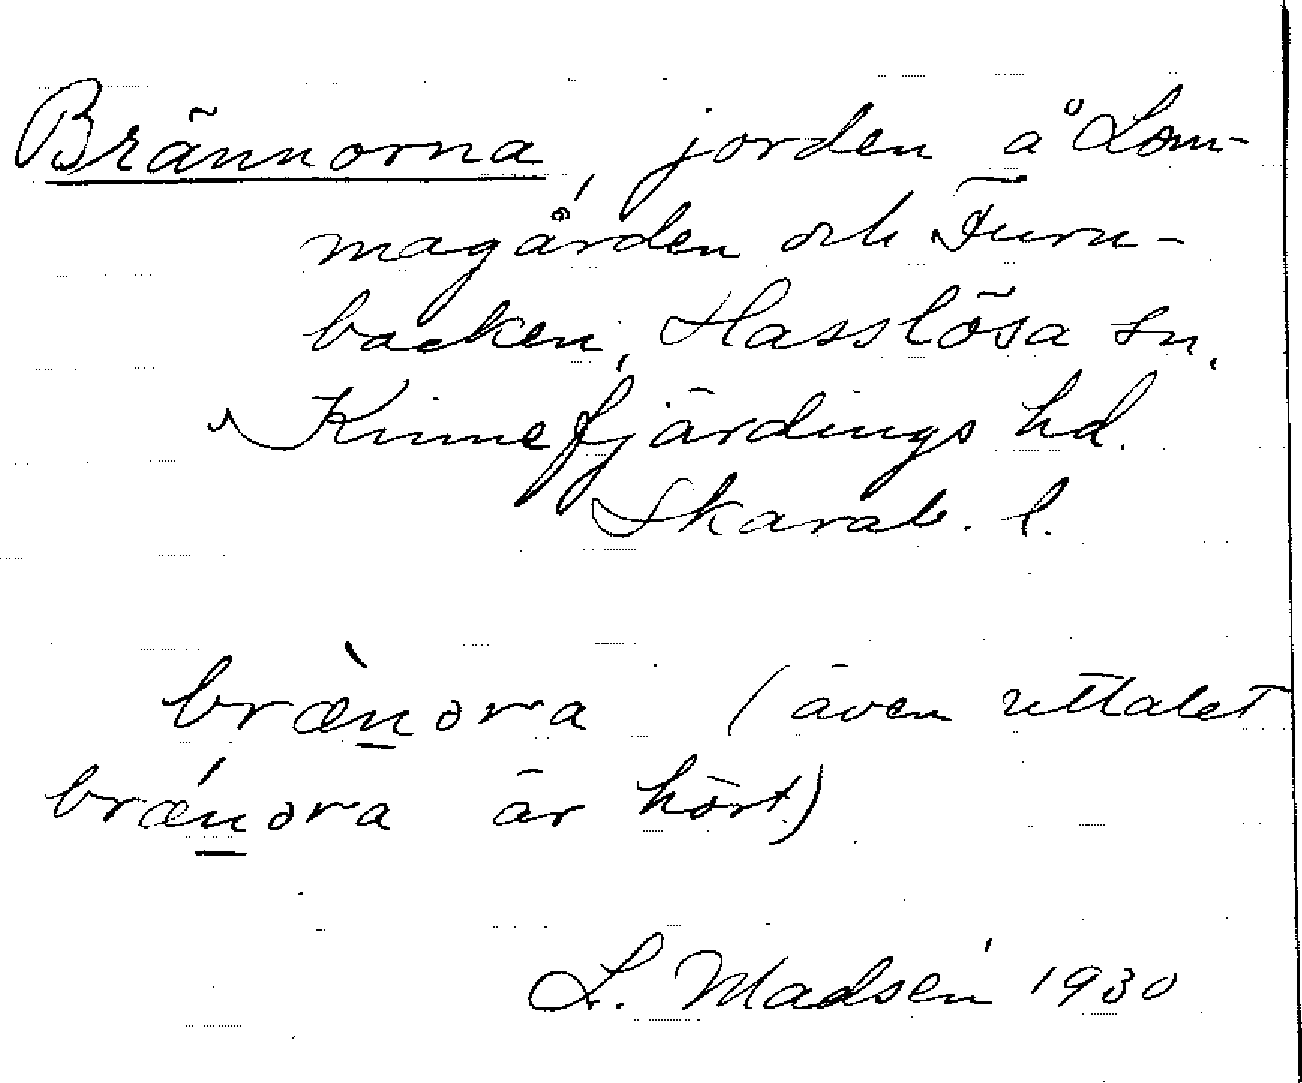 Brännorna, jorden å Lom-
magården och Furu-
backen, Hasslösa sn,
Kinnefjärdings hd.
Skarab. l.
bræ̀n̲ora (även uttalet
brǽn̲ora är hört)
L. Madsén 1930